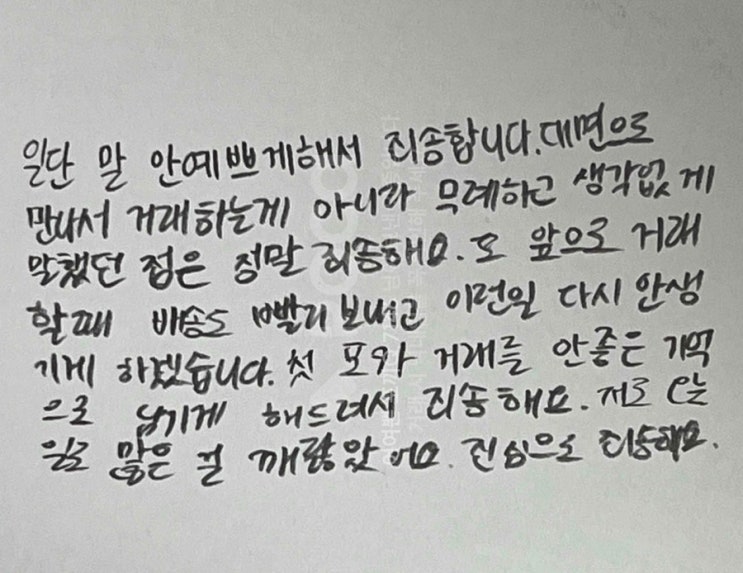 일단 말 안예쁘게해서 죄송합니다. 대면으로
만나서 거래하는게 아니라 무례하고 생각없게
말했던 점은 정말 죄송해요. 또 앞으로 거래
할때 배송도 빨리 보내고 이런일 다시 안생
기게 하겠습니다. 첫 포카 거래를 안좋은 기억
으로 남기게 해드려서 죄송해요. 저도
일로 많은 걸 깨달았어요. 진심으로 죄송해요.